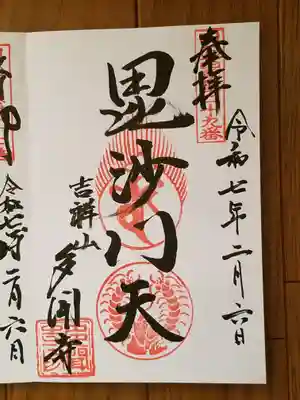 奉拝
令和七年二月六日
毘沙門天
吉祥山
多聞寺
令和七年
二月六日